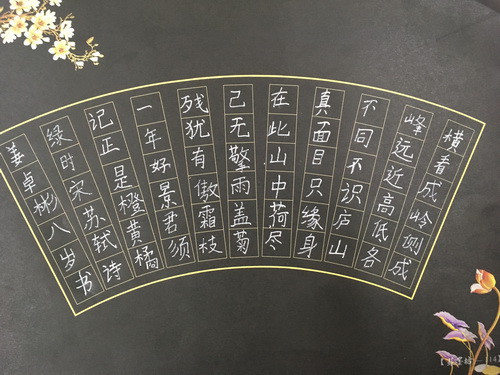 横看成岭侧成
峰远近高低各
不同不识庐山
真面目只缘身
在此山中荷尽
己无擎雨盖菊
残犹有傲霜枝
一年好景君须
记正是橙黄橘
绿时宋苏轼诗
姜卓彬八岁书